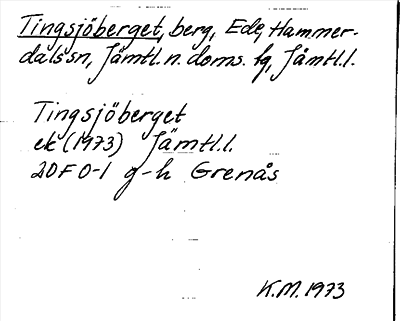 Tingsjöberget, berg, Ede, Hammer-
dals sn, Jämtl. n. doms. fg, Jämtl.l.
Tingsjöberget
ek (1973) Jämtl.l.
20F 0-1 g-h Grenås
K.M. 1973